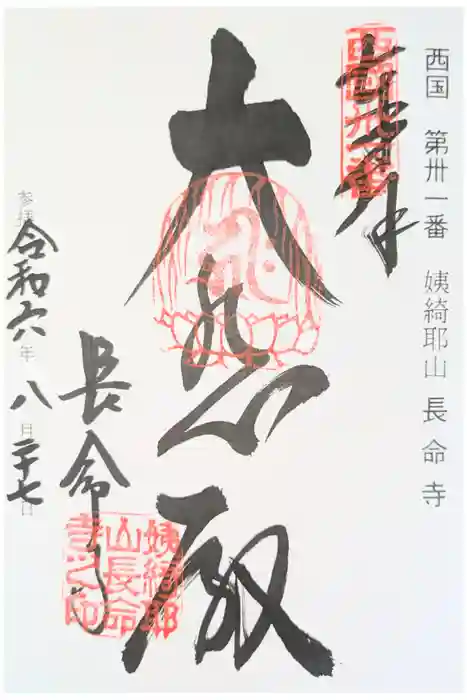 西国 第卅一番 姨綺耶山 長命寺
奉拝
西国卅一番
大悲殿
長命寺
姨綺耶
山長命
寺之印
参拝 令和六年 八月二十七日